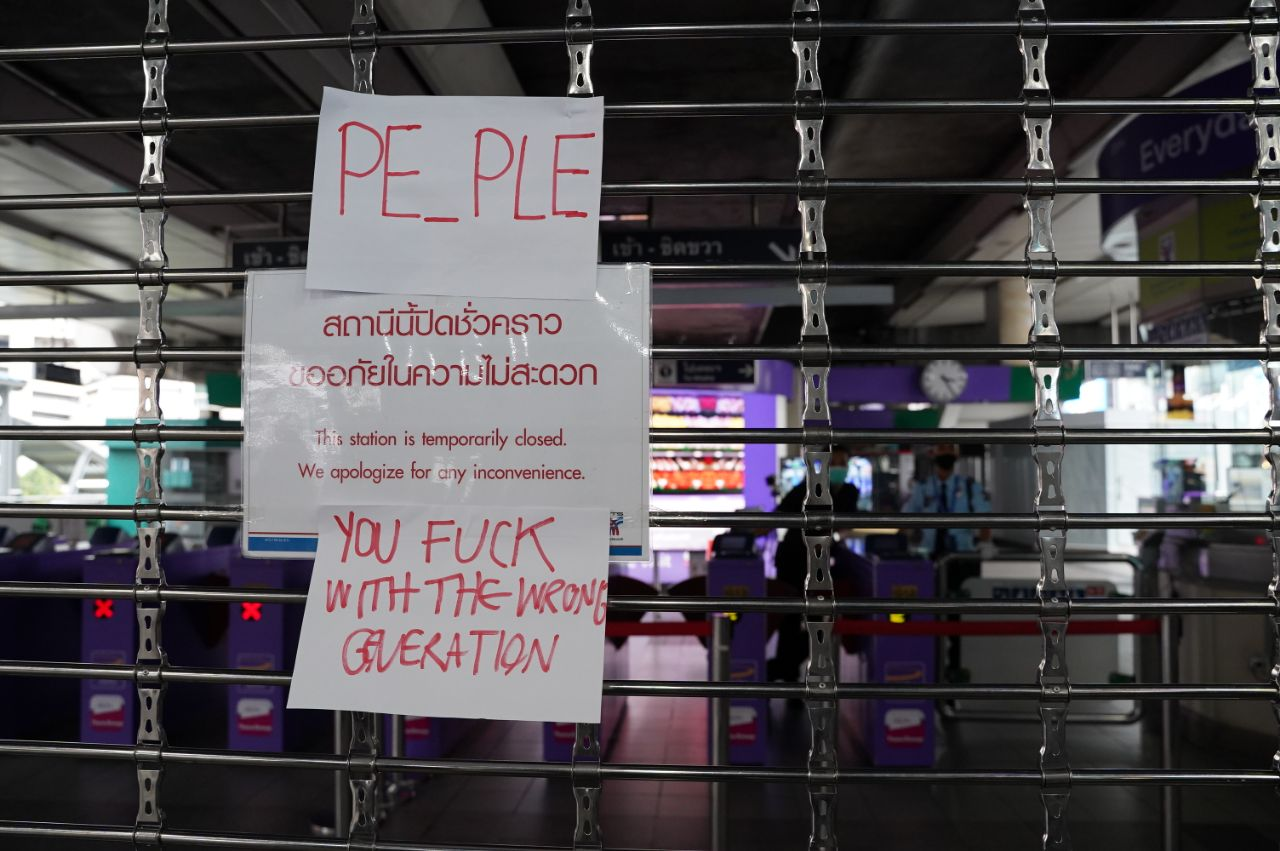 PE_PLE
Everyda
เข้า - ชิดขวา
สถานีนี้ปิดชั่วคราว
ขออภัยในความไม่สะดวก
This station is temporarily closed.
We apologize for any inconvenience.
YOU FUCK
WITH THE WRONG
GENERATION